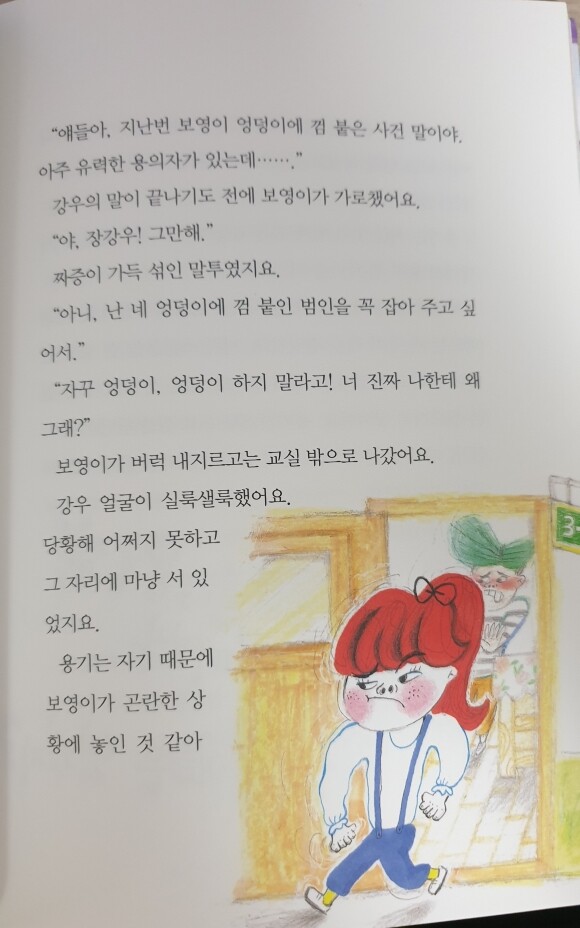 “얘들아, 지난번 보영이 엉덩이에 껌 붙은 사건 말이야.
아주 유력한 용의자가 있는데…….”
강우의 말이 끝나기도 전에 보영이가 가로챘어요.
“야, 장강우! 그만해.”
짜증이 가득 섞인 말투였지요.
“아니, 난 네 엉덩이에 껌 붙인 범인을 꼭 잡아 주고 싶
어서.”
“자꾸 엉덩이, 엉덩이 하지 말라고! 너 진짜 나한테 왜
그래?”
보영이가 버럭 내지르고는 교실 밖으로 나갔어요.
강우 얼굴이 실룩샐룩했어요.
당황해 어쩌지 못하고
그 자리에 마냥 서 있
었지요.
용기는 자기 때문에
보영이가 곤란한 상
황에 놓인 것 같아
3-